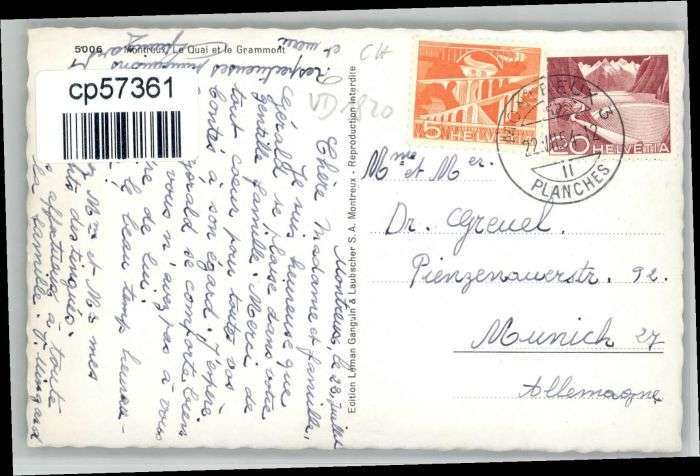 5006 Montreux, Le Quai et le Grammont
cp57361
CH
VD 1920
5 HELVETIA
20 HELVETIA
MONTREUX 3
22.VII.54-12
11
PLANCHES
Edition Leman Ganguin & Laubscher S.A. Montreux - Reproduction interdite
Montreux, le 22 Juillet
Chère Madame et famille,
Je suis heureuse que
Gérald se plaise dans votre
gentille famille. Merci de
tout cœur pour toutes vos
bontés à son égard. J'espère
Gérald se comporte bien
vous n'avez pas à vous
re de lui.
le beau temps
Mme et Mr mes
distingués.
affectueux à toute
la famille.
respectueuses
et merci
Mme et Mr.
Dr. Greuel.
Pienzenauerstr. 92.
Munich 27
Allemagne